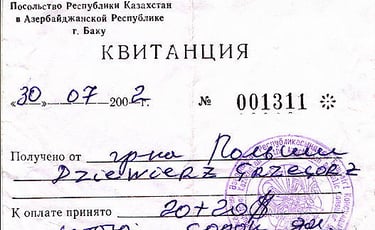 Посольство Республики Казахстан
в Азербайджанской Республике
г. Баку
КВИТАНЦИЯ
«30» 07 2002 г. № 001311 ※
Получено от гр-на Польши
Dziewierz Grzegorz
К оплате принято 20+20$
сорок